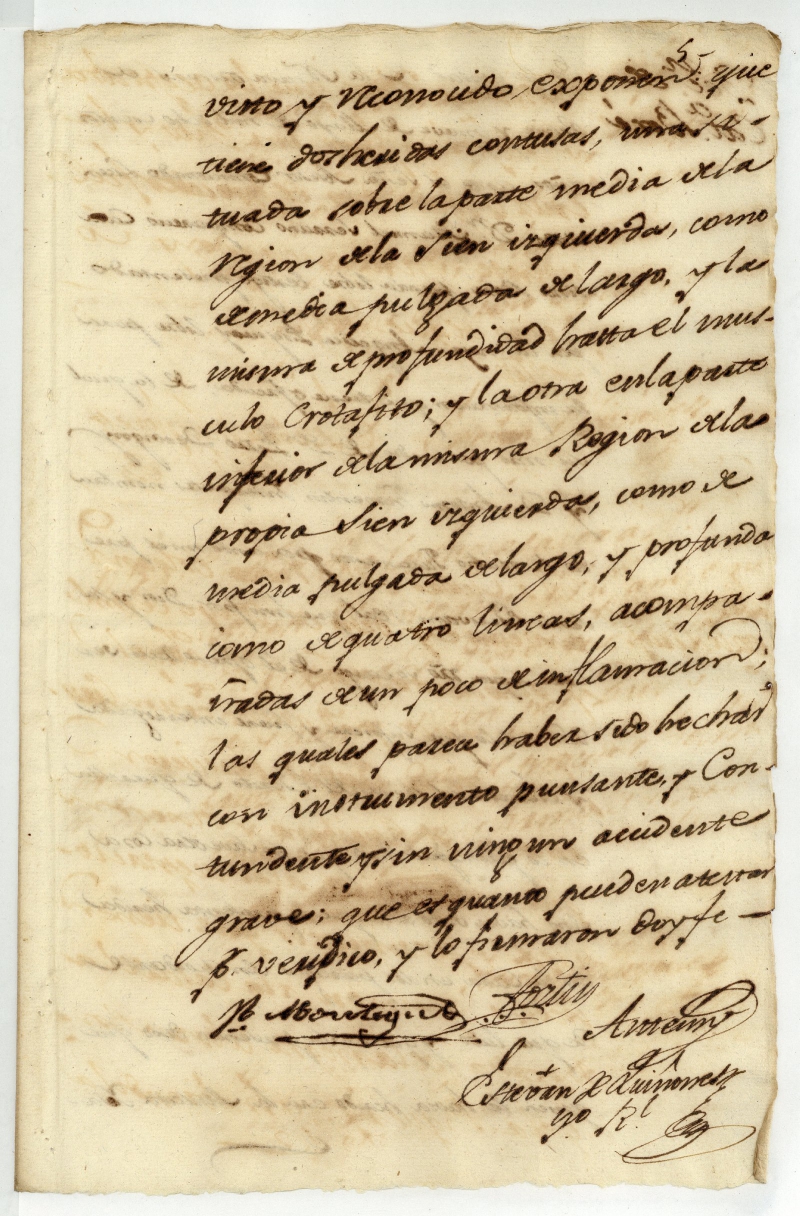 visto y Reconocido, exponen: que
tiene dos heridas contusas, una si-
tuada sobre la parte media de la
Region de la sien izquierda, como
de media pulgada de largo, y la
misma de profundidad hasta el mus-
culo Crotafito; y la otra en la parte
inferior de la misma Region de la
propia sien izquierda, como de
media pulgada de largo, y profunda
como de quatro lineas, acompa-
ñadas de un poco de inflamacion;
las quales parece haber sido hechas
con instrumento punsante, y Con-
tundente y sin ningun accidente
grave; que es quanto pueden atestar
pr. veridico, y lo firmaron doy fe —
Montegut Fortin
Antemy
Estevan de Quiñones
no Rl